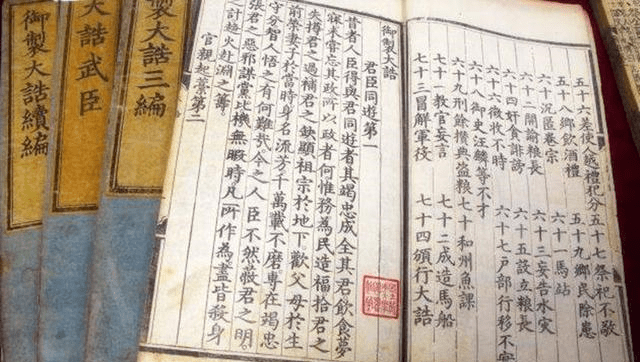 五十六差使人越禮犯分 五十七祭祀不敬
五十八鄉飲酒禮 五十九鄉民除患
六十沉匿卷宗 六十一馬站
六十二閒論糧長 六十三妄告水灾
六十四奸貪誹謗 六十五設立糧長
六十六徵收不時 六十七戶部行移不
六十八御史汪麟等不才
六十九刑餘攢典盗糧 七十和州魚課
七十一教官妄言 七十二成造馬船
七十三冒解軍役 七十四頒行大誥
御製大誥
君臣同遊第一
昔者人臣得與君同遊者其竭忠成全其君飲食夢
寐未嘗忘其政所以政者何惟務為民造福拾君之
失撙君之過補君之缺顯祖宗於地下歡父母於生
前榮妻子於當時身名流芳千萬載不磨專在竭忠
守分智人悟之有何難哉今之人臣不然蔽君之明
張君之惡邪謀黨比機無暇時凡所作為盡皆殺身
之計趨火赴淵之籌
官親起藁第二
製大誥三編
大誥武臣
御製大誥續編